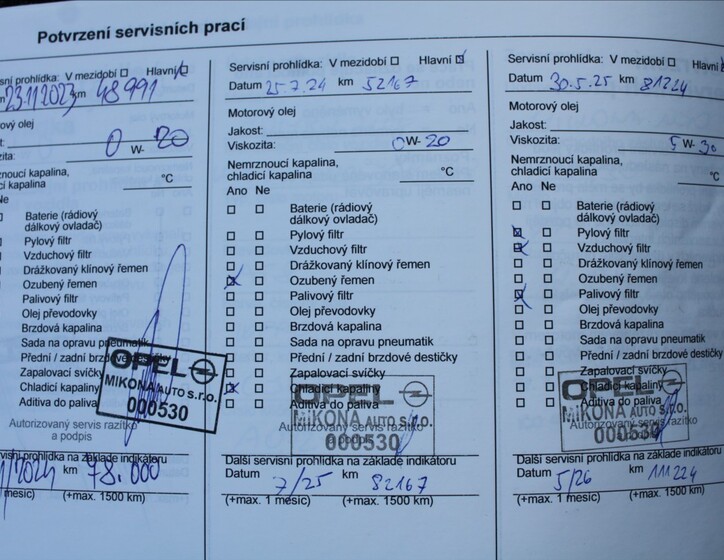 Potvrzení servisních prací
sní prohlídka: V mezidobí Hlavní
23.11.2023 km 48 991
orový olej
st:
ozita: 0 W- 20
znoucí kapalina,
dicí kapalina °C
Ne
Baterie (rádiový
dálkový ovladač)
Pylový filtr
Vzduchový filtr
Drážkovaný klínový řemen
Ozubený řemen
Palivový filtr
Olej převodovky
Brzdová kapalina
Sada na opravu pneumatik
Přední / zadní brzdové destičky
Zapalovací svíčky
Chladicí kapaliny
Aditiva do paliva
OPEL
MIKONA AUTO s.r.o.
000530
Autorizovaný servis razítko
a podpis
visní prohlídka na základě indikátoru
/2024 km 78.000
měsíc) (+max. 1500 km)
Servisní prohlídka: V mezidobí Hlavní
Datum 25.7.24 km 52167
Motorový olej
Jakost:
Viskozita: 0W-20
Nemrznoucí kapalina,
chladicí kapalina °C
Ano Ne
Baterie (rádiový
dálkový ovladač)
Pylový filtr
Vzduchový filtr
Drážkovaný klínový řemen
Ozubený řemen
Palivový filtr
Olej převodovky
Brzdová kapalina
Sada na opravu pneumatik
Přední / zadní brzdové destičky
Zapalovací svíčky
Chladicí kapaliny
Aditiva do paliva
OPEL
MIKONA AUTO s.r.o.
Autorizovaný servis razítko
a podpis
000530
Další servisní prohlídka na základě indikátoru
Datum 7/25 km 82167
(+max. 1 měsíc) (+max. 1500 km)
Servisní prohlídka: V mezidobí Hlavní
Datum 30.5.25 km 81224
Motorový olej
Jakost:
Viskozita: 5 W- 30
Nemrznoucí kapalina,
chladicí kapalina °C
Ano Ne
Baterie (rádiový
dálkový ovladač)
Pylový filtr
Vzduchový filtr
Drážkovaný klínový řemen
Ozubený řemen
Palivový filtr
Olej převodovky
Brzdová kapalina
Sada na opravu pneumatik
Přední / zadní brzdové destičky
Zapalovací svíčky
Chladicí kapaliny
Aditiva do paliva
OPEL
MIKONA AUTO s.r.o.
Autorizovaný servis razítko
a podpis
000530
Další servisní prohlídka na základě indikátoru
Datum 5/26 km 111224
(+max. 1 měsíc) (+max. 1500 km)